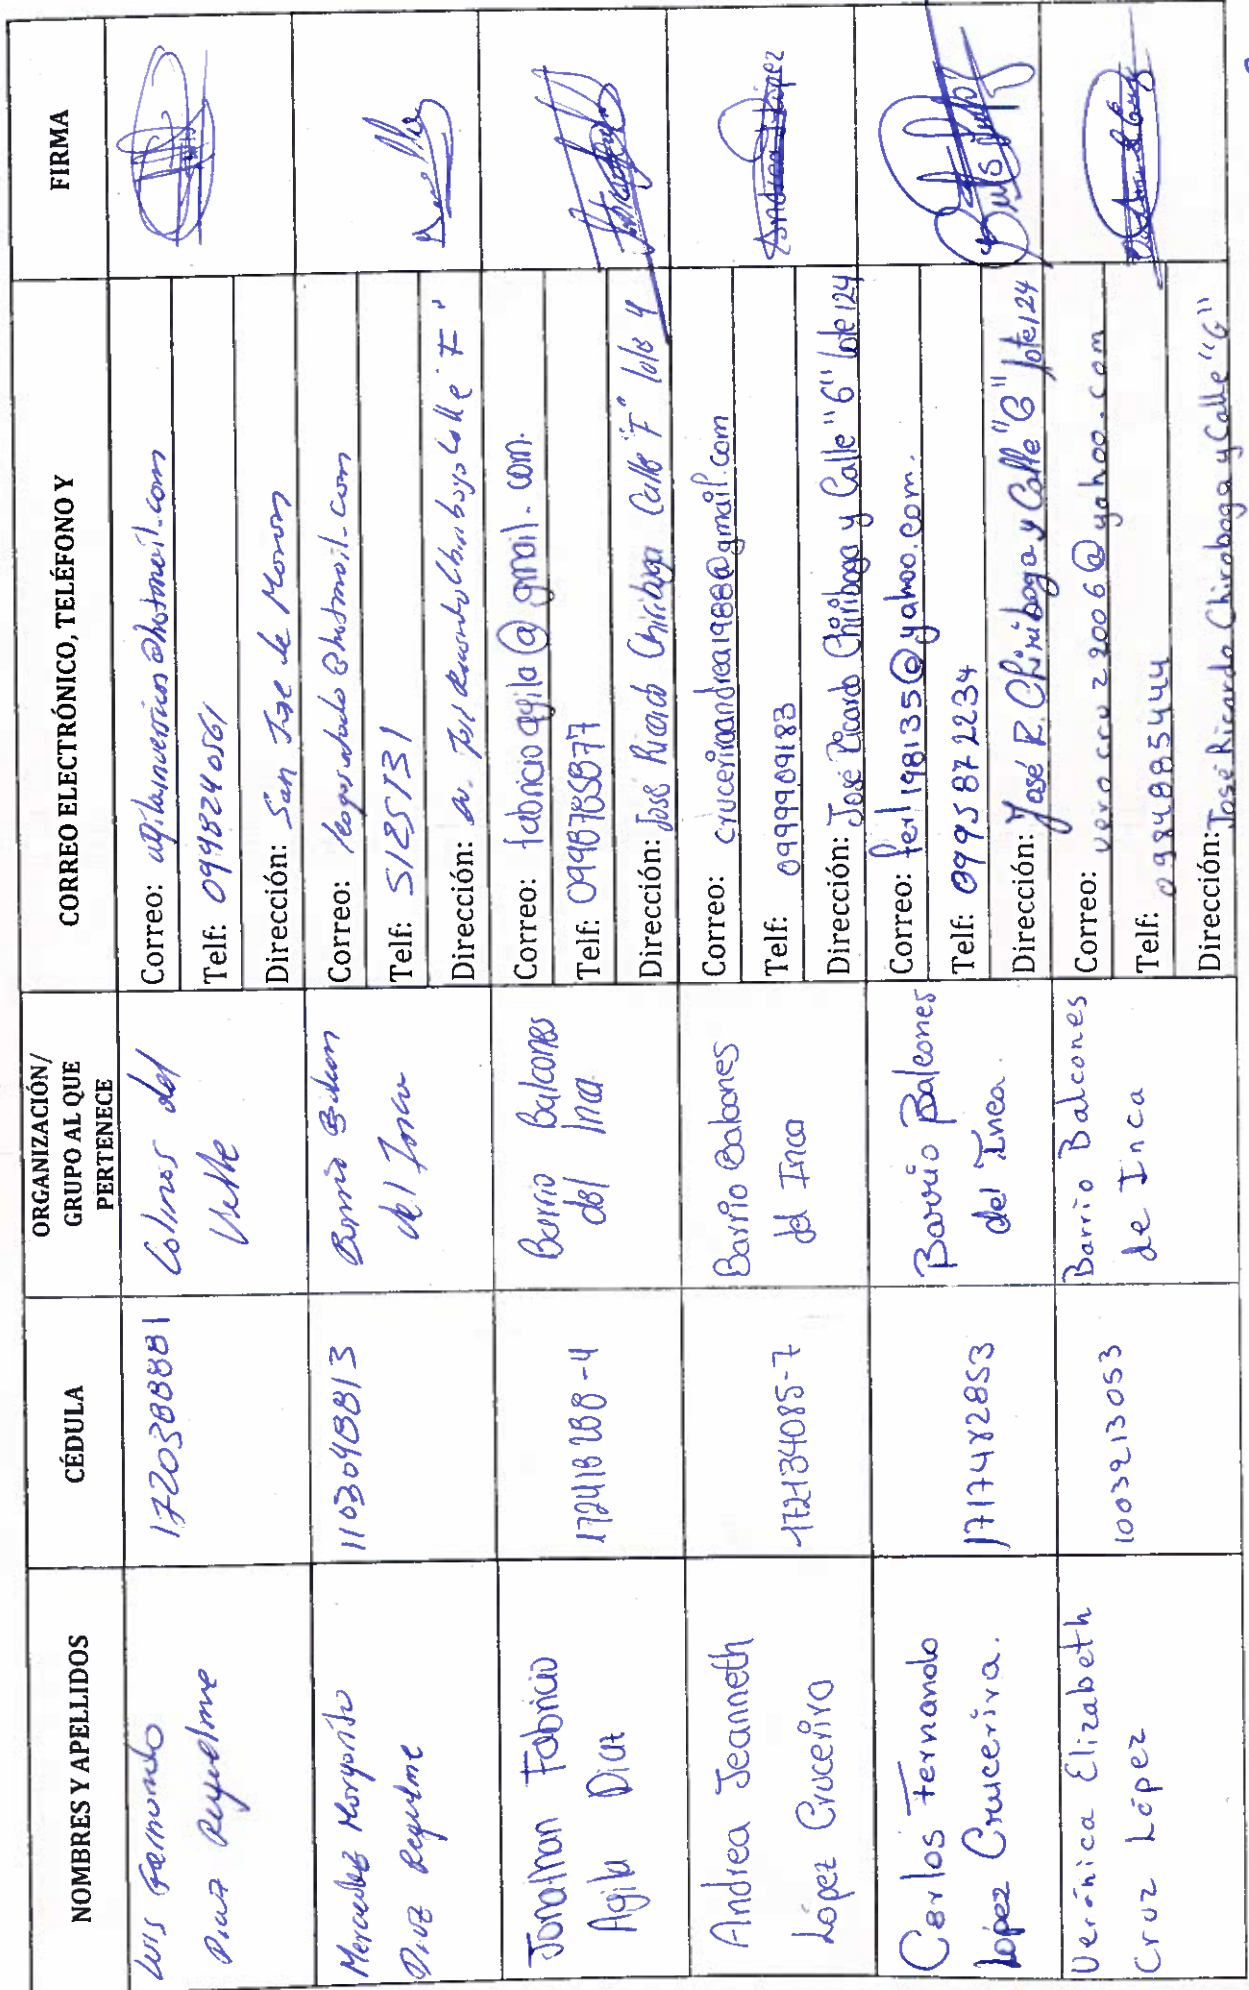 NOMBRES Y APELLIDOS
CÉDULA
ORGANIZACIÓN/
GRUPO AL QUE
PERTENECE
CORREO ELECTRÓNICO, TELÉFONO Y
FIRMA
Luis Fernando
Diaz Reyelme
1720388881
Colinas del
Valle
Correo: @hotmail.com
Telf: 0998240561
Dirección: San Jose de Moran
Mercedes Margarita
Diaz
1103048813
Barrio
del Inca
Correo: @hotmail.com
Telf: 5125131
Dirección: Av. José Ricardo Chiriboga Calle "F"
Jonathan Fabricio
Agila Diaz
172418288-4
Barrio Balcones
del Inca
Correo: fabricioagila@gmail.com.
Telf: 0998785877
Dirección: José Ricardo Chiriboga Calle "F" lote 4
Andrea Jeanneth
López Cruceriro
172134085-7
Barrio Balcones
del Inca
Correo: cruceriraandrea1988@gmail.com
Telf: 0999909183
Dirección: José Ricardo Chiriboga y Calle "G" lote 124
Andrea López
Carlos Fernando
López Cruicerira.
1717482853
Barrio Balcones
del Inca
Correo: fer198135@yahoo.com.
Telf: 0995872234
Dirección: José R. Chiriboga y Calle "G" lote 124
Verónica Elizabeth
Cruz López
1003213053
Barrio Balcones
de Inca
Correo: verocruz2006@yahoo.com
Telf: 0984885444
Dirección: José Ricardo Chiriboga y Calle "G"